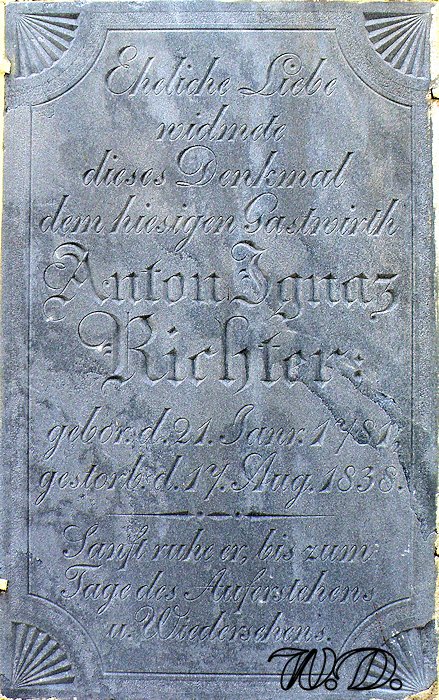 Eheliche Liebe
widmete
dieses Denkmal
dem hiesigen Gastwirth
Anton Ignaz
Richter:
gebor. d. 21. Janr. 1781,
gestorb. d. 17. Aug. 1838.
Sanft ruhe er, bis zum
Tage des Auferstehens
u. Wiedersehens.
W. D.